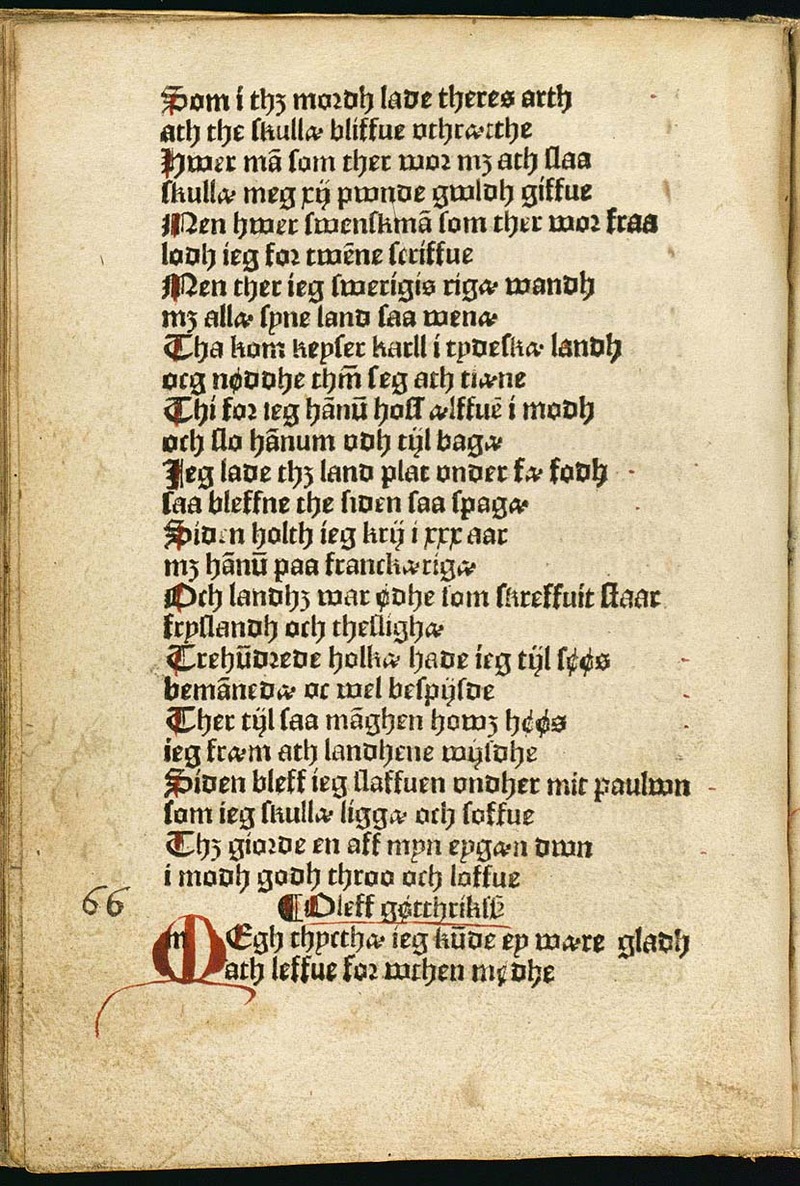 Som i thꝫ mordh lade theres arth
ath the skullæ bliffue vthrætthe
Hwer mā som ther wor mꝫ ath slaa
skullæ meg xij pwnde gwldh giffue
Men hwer swenskmā som ther wor fraa
lodh ieg for twēne scriffue
Men ther ieg swerigis rigæ wandh
mꝫ allæ syne land saa wenæ
Tha kom keyser karll i tydeskæ landh
ocg nøddhe thm̄ seg ath tiæne
Thi for ieg hānū hoss ælffuē i modh
och slo hānum vdh tijl bagæ
Jeg lade thꝫ land plat vnder fæ fodh
saa bleffne the siden saa spagæ
Siden holth ieg krij i xxx aar
mꝫ hānū paa franckærigæ
Och landhꝫ war ødhe som skreffuit staar
fryslandh och theslighæ
Trehūdrede holkæ hade ieg tijl søøs
bemānedæ oc wel bespijsde
Ther tijl saa māghen howꝫ høøs
ieg fræm ath landhene wijsdhe
Siden bleff ieg slaffuen vndher mit paulwn
som ieg skullæ liggæ och soffue
Thꝫ giorde en aff myn eygæn dwn
i modh godh throo och loffue
66
¶Oleff gøtthrikssø̄
MEgh thycthæ ieg kūde ey wære gladh
ath leffue for wthen mødhe